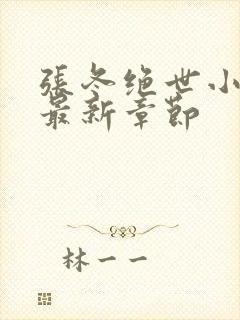 張冬绝世小
最新章節
林一一